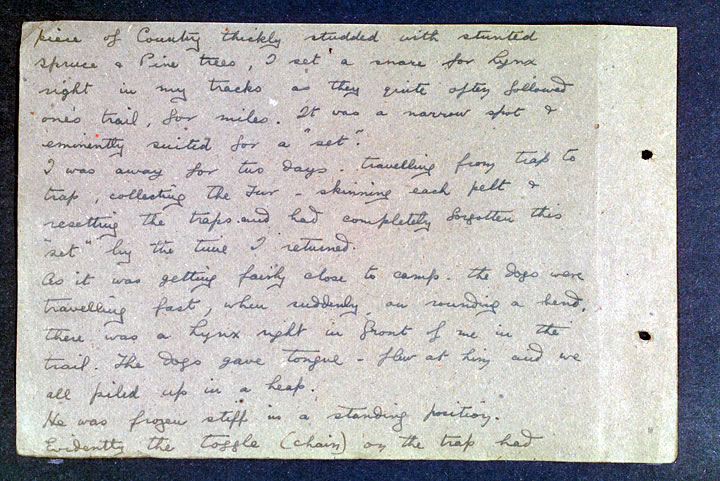 piece of Country thickly studded with stunted
spruce & Pine trees, I set a snare for Lynx
right in my tracks as they quite often followed
one's trail, for miles. It was a narrow spot &
eminently suited for a "set".
I was away for two days - travelling from trap to
trap, collecting the Fur - skinning each pelt &
resetting the traps and had completely forgotten this
"set" by the time I returned.
As it was getting fairly close to camp - the dogs were
travelling fast, when suddenly, on rounding a bend,
there was a Lynx right in front of me in the
trail. The dogs gave tongue - flew at him and we
all piled up in a heap.
He was frozen stiff in a standing position.
Evidently the toggle (chain) on the trap had